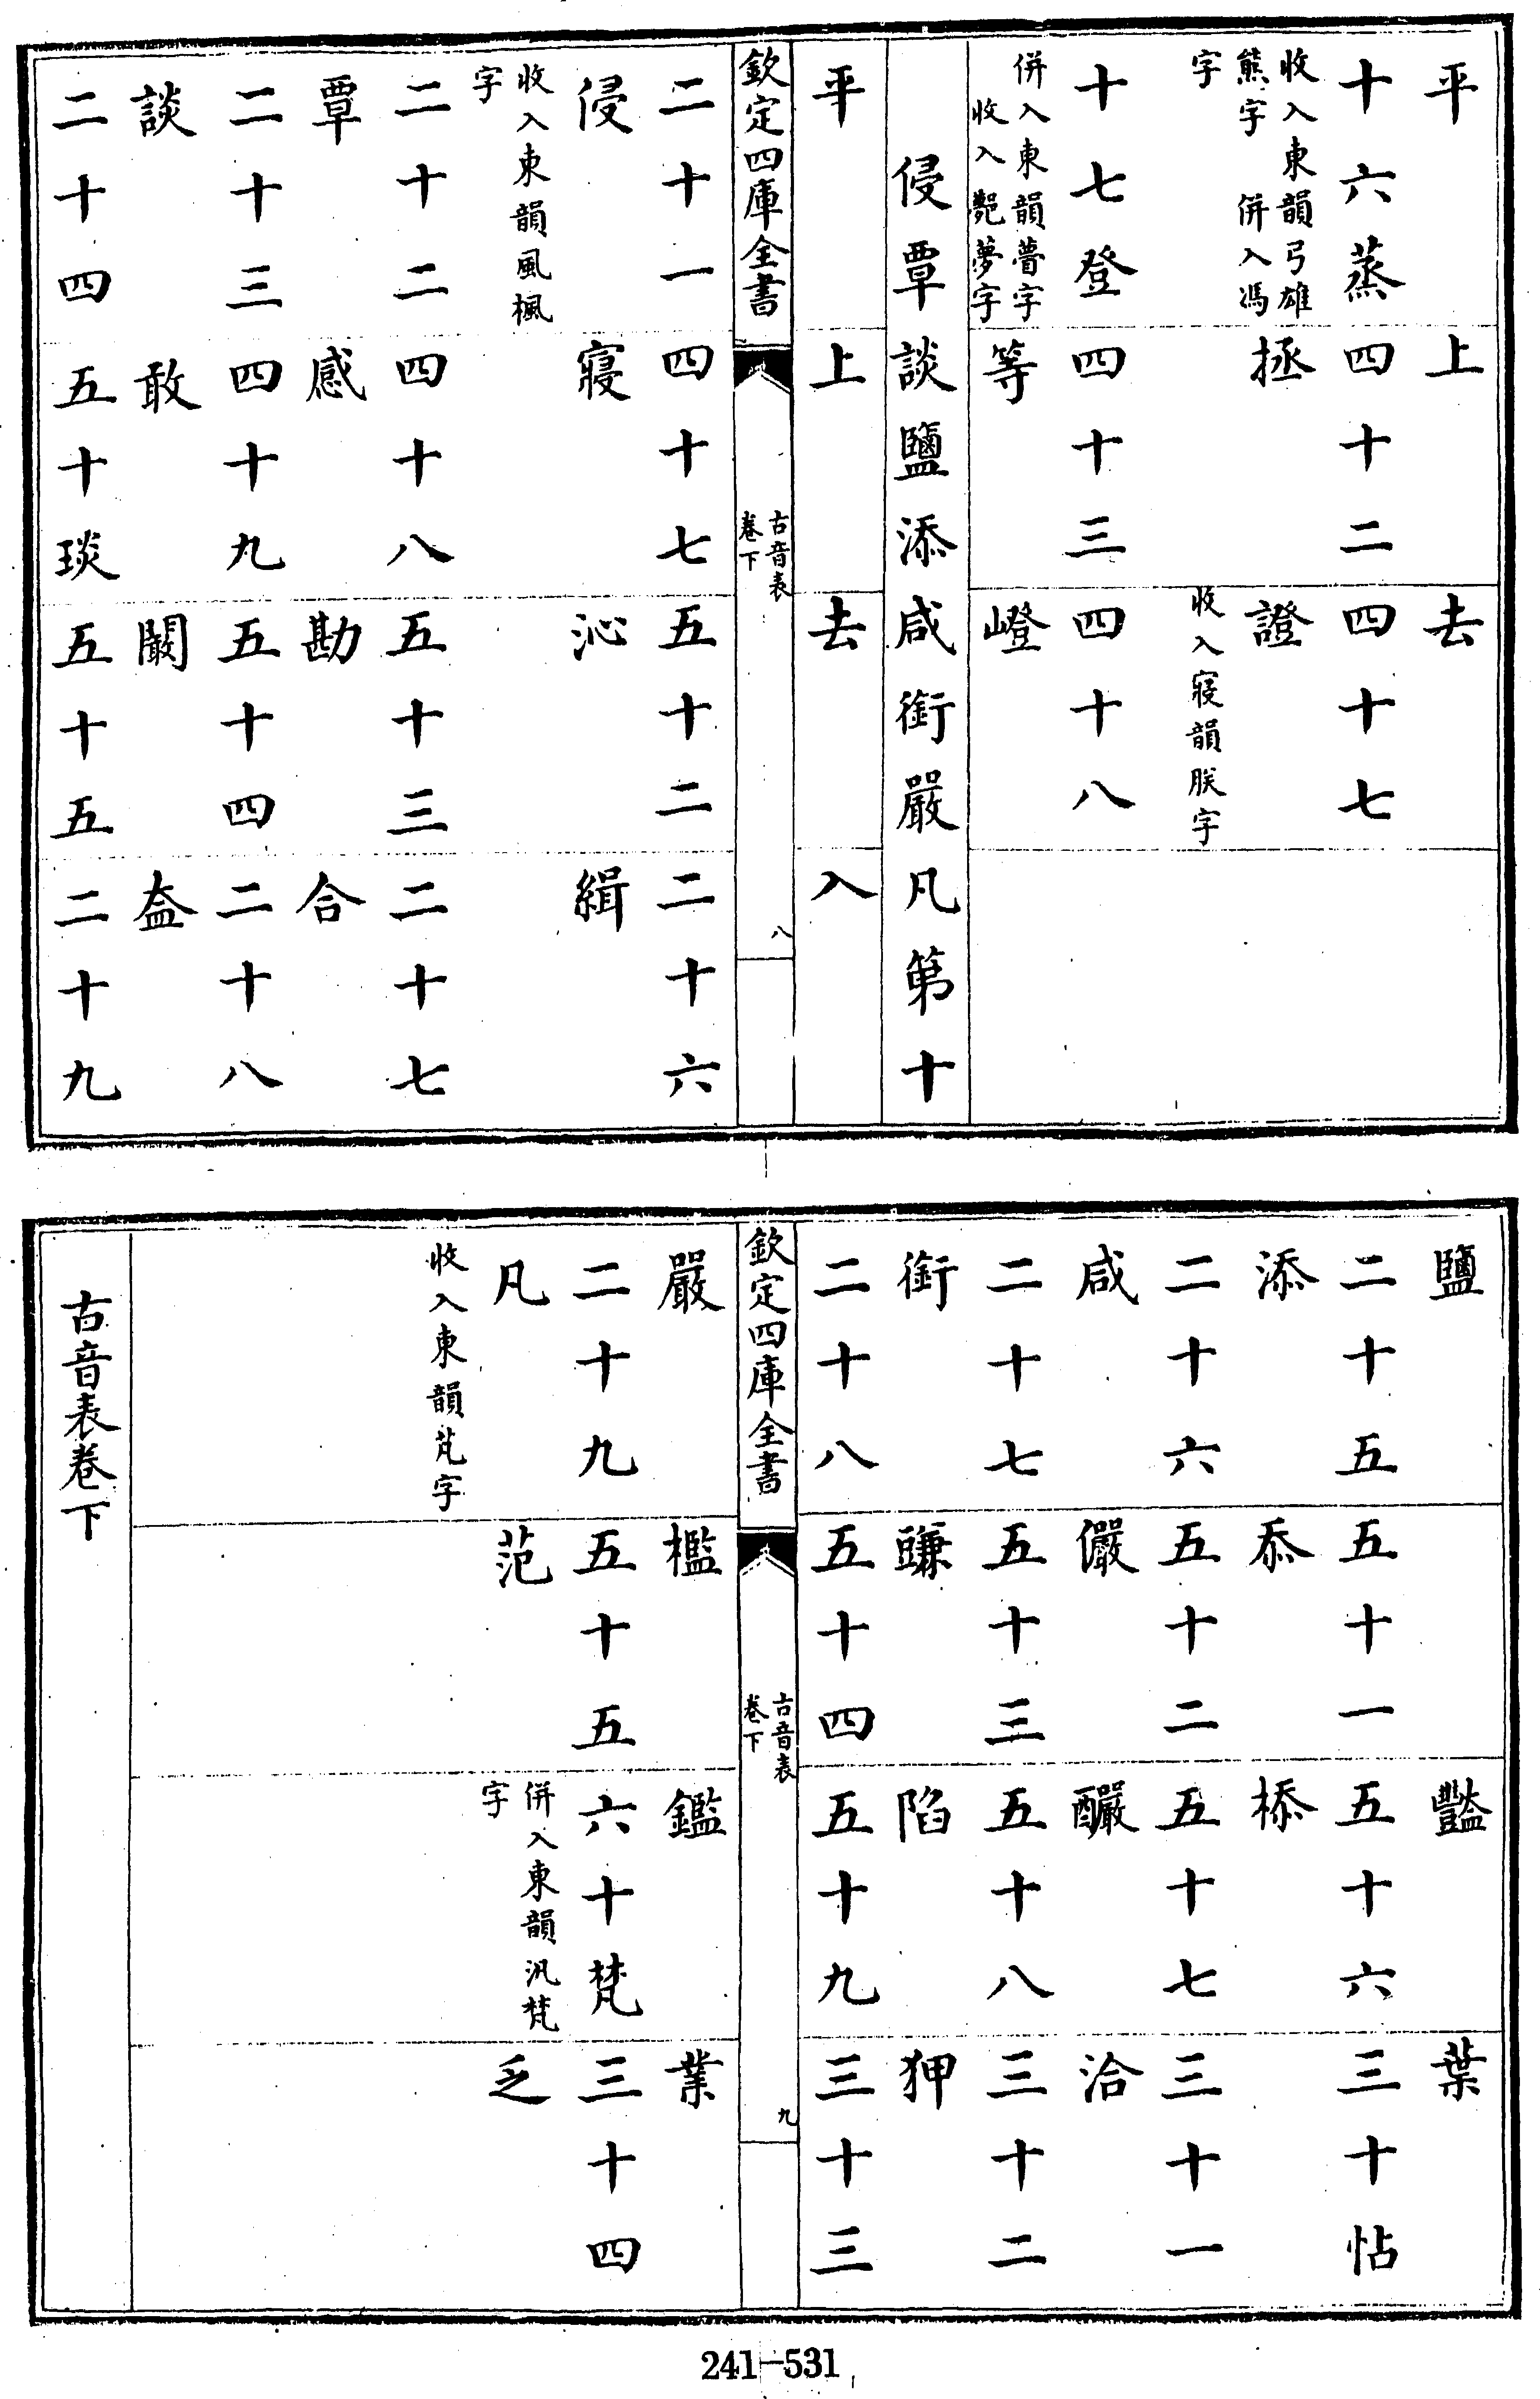 平 上 去
十六蒸 四十二 四十七
收入東韻弓雄
熊字 併入馮
字 拯 證
收入寢韻朕字
十七登 四十三 四十八
併入東韻瞢字
收入夢字 等 嶝
侵覃談鹽添咸銜嚴凡第十
平 上 去 入
欽定四庫全書
古音表
卷下
八
二十一 四十七 五十二 二十六
侵 寢 沁 緝
收入東韻風楓
字
二十二 四十八 五十三 二十七
覃 感 勘 合
二十三 四十九 五十四 二十八
談 敢 闞 盍
二十四 五十琰 五十五 二十九
鹽 豔 葉
二十五 五十一 五十六 三十怗
添 忝 㮇
二十六 五十二 五十七 三十一
咸 儼 釅 洽
二十七 五十三 五十八 三十二
銜 豏 陷 狎
二十八 五十四 五十九 三十三
欽定四庫全書
古音表
卷下
九
嚴 檻 鑑 業
二十九 五十五 六十梵 三十四
凡 范 乏
併入東韻汎梵
字
收入東韻芃字
古音表卷下
241-531